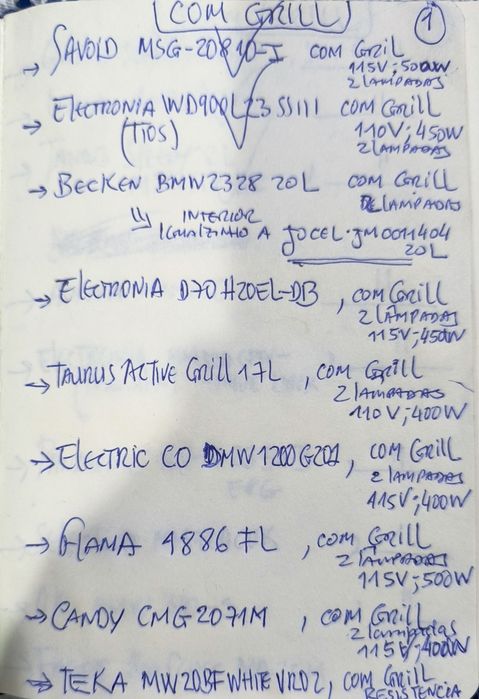 (COM GRILL) 1
→ SAVOID MSG-20810-I COM GRIL
115V; 500W
2 LAMPADAS
→ ELECTRONIA WD900L23SSIII COM GRILL
(TIOS) 110V; 450W
2 LAMPADAS
→ BECKEN BMW2328 20L COM GRILL
2 LAMPADAS
INTERIOR
IGUALZINHO A JOCEL-JM0011404
20L
→ ELECTRONIA D70H20EL-DB, COM GRILL
2 LAMPADAS
115V; 450W
→ TAURUS ACTIVE GRILL 17L, COM GRILL
2 LAMPADAS
110V; 400W
→ ELECTRIC CO DMW1200G201, COM GRILL
2 LAMPADAS
115V; 400W
→ FLAMA 4886FL, COM GRILL
2 LAMPADAS
115V; 500W
→ CANDY CMG2071M, COM GRILL
2 lampadas
115V; 400W
→ TEKA MW20BFWHITEVR02, COM GRILL
RESISTENCIA